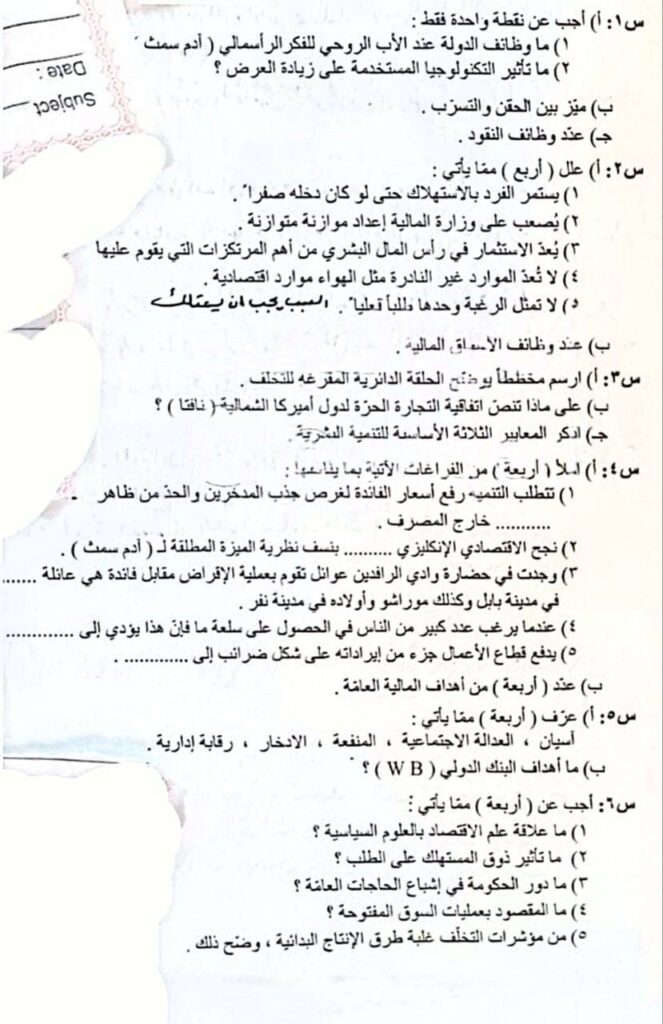 Date :
Subject
س١: أ) أجب عن نقطة واحدة فقط :
١) ما وظائف الدولة عند الأب الروحي للفكر الرأسمالي ( آدم سمث )
٢) ما تأثير التكنولوجيا المستخدمة على زيادة العرض ؟
ب) ميّز بين الحقن والتسرّب .
جـ) عدّد وظائف النقود .
س٢: أ) علل ( أربع ) ممّا يأتي :
١) يستمر الفرد بالاستهلاك حتى لو كان دخله صفراً .
٢) يُصعب على وزارة المالية إعداد موازنة متوازنة .
٣) يُعدّ الاستثمار في رأس المال البشري من أهم المرتكزات التي يقوم عليها
٤) لا تُعدّ الموارد غير النادرة مثل الهواء موارد اقتصادية .
٥) لا تمثل الرغبة وحدها طلباً فعلياً . السبب يجب ان يمتلك
ب) عدد وظائف الأسواق المالية .
س٣: أ) ارسم مخططاً يوضّح الحلقة الدائرية المفرغة للتخلف .
ب) على ماذا تنصّ اتفاقية التجارة الحرّة لدول أميركا الشمالية ( نافتا ) ؟
جـ) اذكر المعايير الثلاثة الأساسية للتنمية البشرية .
س٤: أ) املأ ( أربعة ) من الفراغات الآتية بما يناسبها :
١) تتطلب التنمية رفع أسعار الفائدة لغرض جذب المدخرين والحدّ من ظاهر
........... خارج المصرف .
٢) نجح الاقتصادي الإنكليزي .......... بنسف نظرية الميزة المطلقة لـ ( آدم سمث ) .
٣) وجدت في حضارة وادي الرافدين عوائل تقوم بعملية الإقراض مقابل فائدة هي عائلة ........
في مدينة بابل وكذلك موراشو وأولاده في مدينة نفر .
٤) عندما يرغب عدد كبير من الناس في الحصول على سلعة ما فإنّ هذا يؤدي إلى ..............
٥) يدفع قطاع الأعمال جزء من إيراداته على شكل ضرائب إلى ............. .
ب) عدّد ( أربعة ) من أهداف المالية العامّة .
س٥: أ) عرّف ( أربعة ) ممّا يأتي :
آسيان ، العدالة الاجتماعية ، المنفعة ، الادخار ، رقابة إدارية .
ب) ما أهداف البنك الدولي ( W B ) ؟
س٦: أجب عن ( أربعة ) ممّا يأتي :
١) ما علاقة علم الاقتصاد بالعلوم السياسية ؟
٢) ما تأثير ذوق المستهلك على الطلب ؟
٣) ما دور الحكومة في إشباع الحاجات العامّة ؟
٤) ما المقصود بعمليات السوق المفتوحة ؟
٥) من مؤشرات التخلّف غلبة طرق الإنتاج البدائية ، وضّح ذلك .